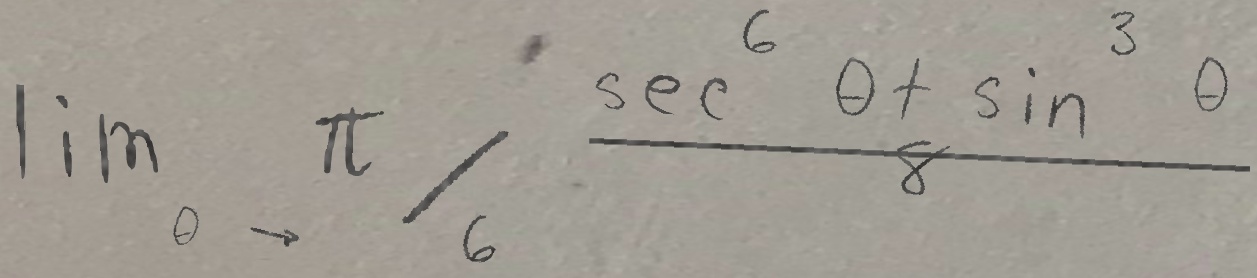 lim θ → π/6 (sec^6 θ + sin^3 θ)/8